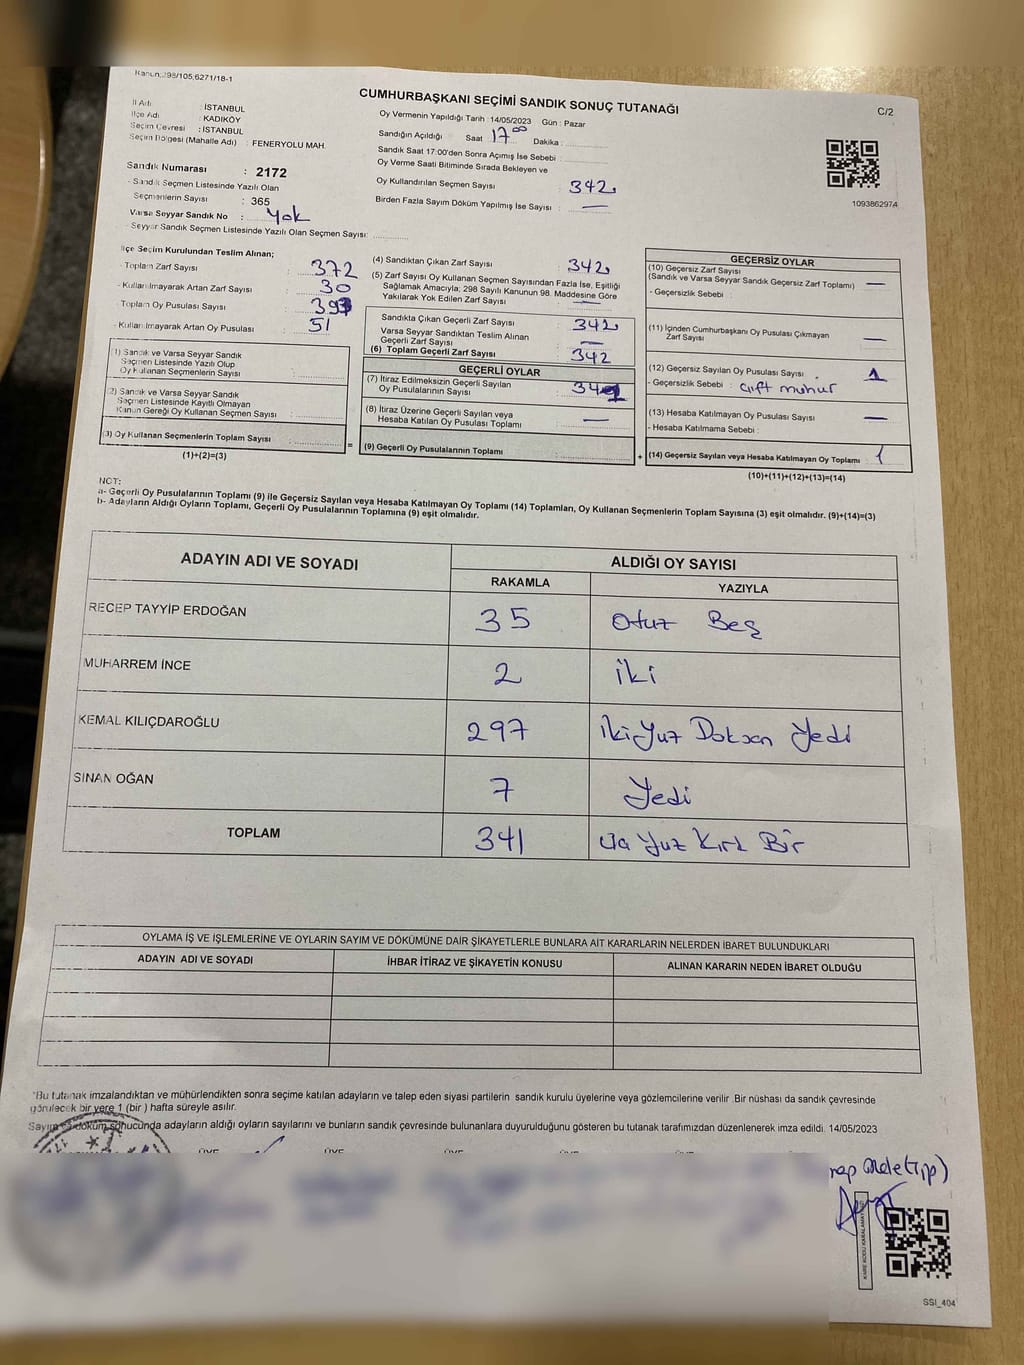 Kanun:298/105,6271/18-1
CUMHURBAŞKANI SEÇİMİ SANDIK SONUÇ TUTANAĞI
C/2
İl Adı : İSTANBUL
İlçe Adı : KADIKÖY
Seçim Çevresi : İSTANBUL
Seçim Bölgesi (Mahalle Adı) : FENERYOLU MAH.
Sandık Numarası : 2172
- Sandık Seçmen Listesinde Yazılı Olan
Seçmenlerin Sayısı : 365
Varsa Seyyar Sandık No : Yok
- Seyyar Sandık Seçmen Listesinde Yazılı Olan Seçmen Sayısı:
Oy Vermenin Yapıldığı Tarih :14/05/2023 Gün : Pazar
Sandığın Açıldığı Saat 17 00 Dakika :
Sandık Saat 17:00'den Sonra Açımış İse Sebebi :
Oy Verme Saati Bitiminde Sırada Bekleyen ve
Oy Kullandırılan Seçmen Sayısı 342
Birden Fazla Sayım Döküm Yapılmış İse Sayısı : —
109386297A
İlçe Seçim Kurulundan Teslim Alınan;
- Toplam Zarf Sayısı : 372
- Kullanılmayarak Artan Zarf Sayısı : 30
- Toplam Oy Pusulası Sayısı : 393
- Kullanılmayarak Artan Oy Pusulası : 51
(1) Sandık ve Varsa Seyyar Sandık
Seçmen Listesinde Yazılı Olup
Oy Kullanan Seçmenlerin Sayısı :
(2) Sandık ve Varsa Seyyar Sandık
Seçmen Listesinde Kayıtlı Olmayan
Kanun Gereği Oy Kullanan Seçmen Sayısı :
(3) Oy Kullanan Seçmenlerin Toplam Sayısı :
(1)+(2)=(3)
=
(4) Sandıktan Çıkan Zarf Sayısı : 342
(5) Zarf Sayısı Oy Kullanan Seçmen Sayısından Fazla İse, Eşitliği
Sağlamak Amacıyla; 298 Sayılı Kanunun 98. Maddesine Göre
Yakılarak Yok Edilen Zarf Sayısı : —
Sandıkta Çıkan Geçerli Zarf Sayısı : 342
Varsa Seyyar Sandıktan Teslim Alınan
Geçerli Zarf Sayısı : —
(6) Toplam Geçerli Zarf Sayısı : 342
GEÇERLİ OYLAR
(7) İtiraz Edilmeksizin Geçerli Sayılan
Oy Pusulalarının Sayısı :
(8) İtiraz Üzerine Geçerli Sayılan veya
Hesaba Katılan Oy Pusulası Toplamı : —
(9) Geçerli Oy Pusulalarının Toplamı :
+
GEÇERSİZ OYLAR
(10) Geçersiz Zarf Sayısı
(Sandık ve Varsa Seyyar Sandık Geçersiz Zarf Toplamı) : —
- Geçersizlik Sebebi :
(11) İçinden Cumhurbaşkanı Oy Pusulası Çıkmayan
Zarf Sayısı : —
(12) Geçersiz Sayılan Oy Pusulası Sayısı : 1
- Geçersizlik Sebebi : çift mühür
(13) Hesaba Katılmayan Oy Pusulası Sayısı : —
- Hesaba Katılmama Sebebi :
(14) Geçersiz Sayılan veya Hesaba Katılmayan Oy Toplamı : 1
(10)+(11)+(12)+(13)=(14)
NOT:
a- Geçerli Oy Pusulalarının Toplamı (9) ile Geçersiz Sayılan veya Hesaba Katılmayan Oy Toplamı (14) Toplamları, Oy Kullanan Seçmenlerin Toplam Sayısına (3) eşit olmalıdır. (9)+(14)=(3)
b- Adayların Aldığı Oyların Toplamı, Geçerli Oy Pusulalarının Toplamına (9) eşit olmalıdır.
ADAYIN ADI VE SOYADI ALDIĞI OY SAYISI
RAKAMLA YAZIYLA
RECEP TAYYİP ERDOĞAN 35 Otuz Beş
MUHARREM İNCE 2 İki
KEMAL KILIÇDAROĞLU 297 İkiyuz Doksan Yedi
SİNAN OĞAN 7 Yedi
TOPLAM 341 Üç Yuz Kırk Bir
OYLAMA İŞ VE İŞLEMLERİNE VE OYLARIN SAYIM VE DÖKÜMÜNE DAİR ŞİKAYETLERLE BUNLARA AİT KARARLARIN NELERDEN İBARET BULUNDUKLARI
ADAYIN ADI VE SOYADI İHBAR İTİRAZ VE ŞİKAYETİN KONUSU ALINAN KARARIN NEDEN İBARET OLDUĞU
*Bu tutanak imzalandıktan ve mühürlendikten sonra seçime katılan adayların ve talep eden siyasi partilerin sandık kurulu üyelerine veya gözlemcilerine verilir .Bir nüshası da sandık çevresinde
görülecek bir yere 1 (bir ) hafta süreyle asılır.
Sayım ve döküm sonucunda adayların aldığı oyların sayılarını ve bunların sandık çevresinde bulunanlara duyurulduğunu gösteren bu tutanak tarafımızdan düzenlenerek imza edildi. 14/05/2023
ÜYE ÜYE ÜYE ÜYE ÜYE
KARE KODU KARALAMAYINIZ
SSI_404